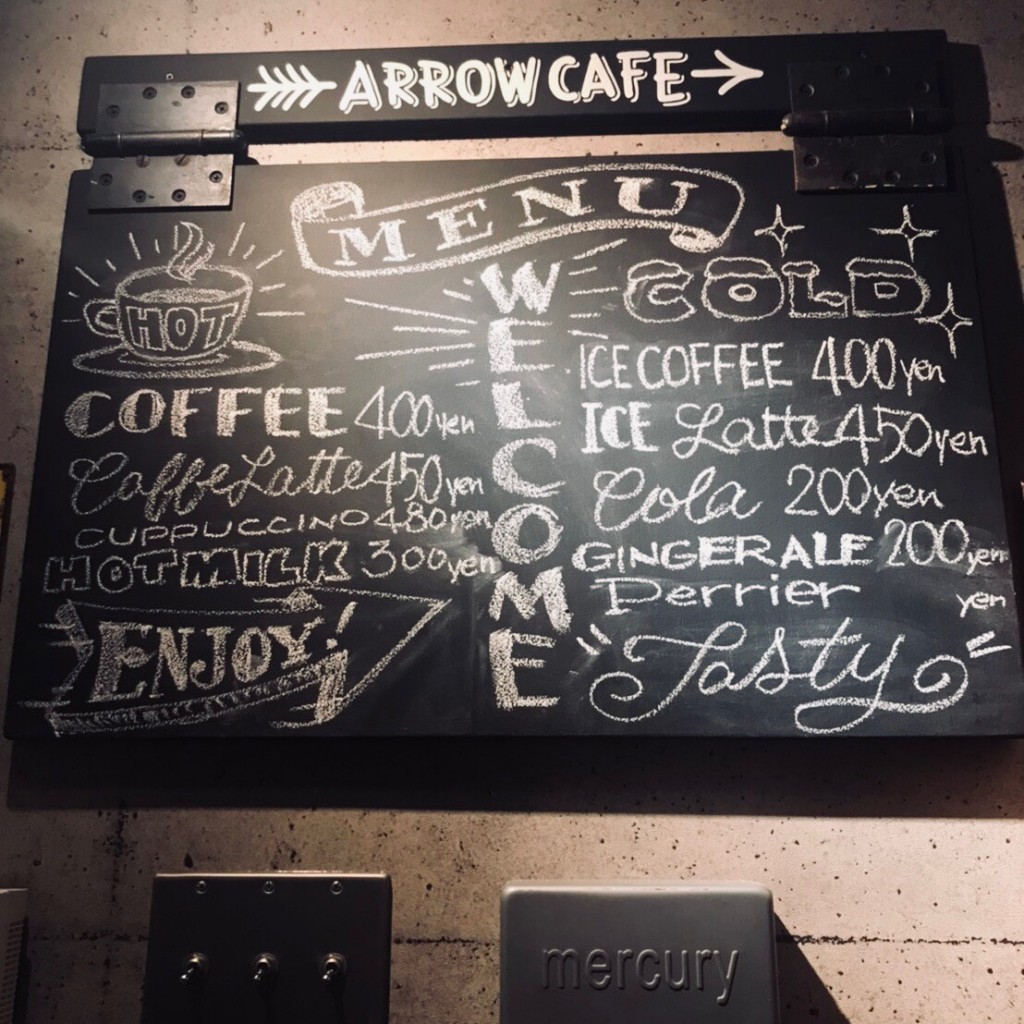 ARROW CAFE
MENU
WELCOME
HOT
COFFEE 400yen
Caffe Latte 450yen
CUPPUCCINO 480yen
HOT MILK 300yen
ENJOY!
COLD
ICE COFFEE 400yen
ICE Latte 450yen
Cola 200yen
GINGERALE 200yen
Perrier yen
Tasty
mercury